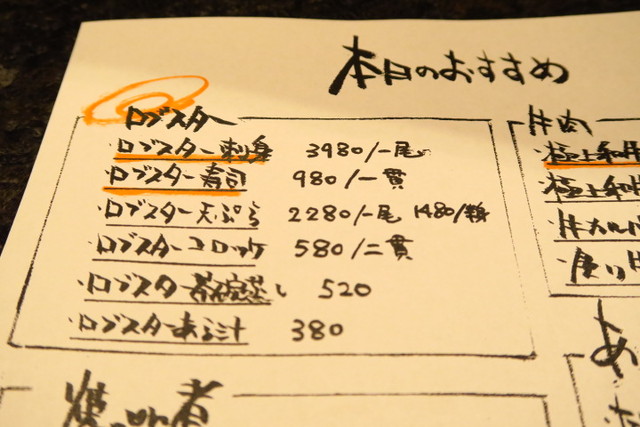 本日のおすすめ
ロブスター
ロブスター刺身 3980/一尾
ロブスター寿司 980/一貫
・ロブスター天ぷら 2280/一尾 1480/
・ロブスターコロッケ 580/二貫
・ロブスター茶碗蒸し 520
・ロブスターあら汁 380
牛肉
極上和牛
極上和牛
・牛カルパ
あ